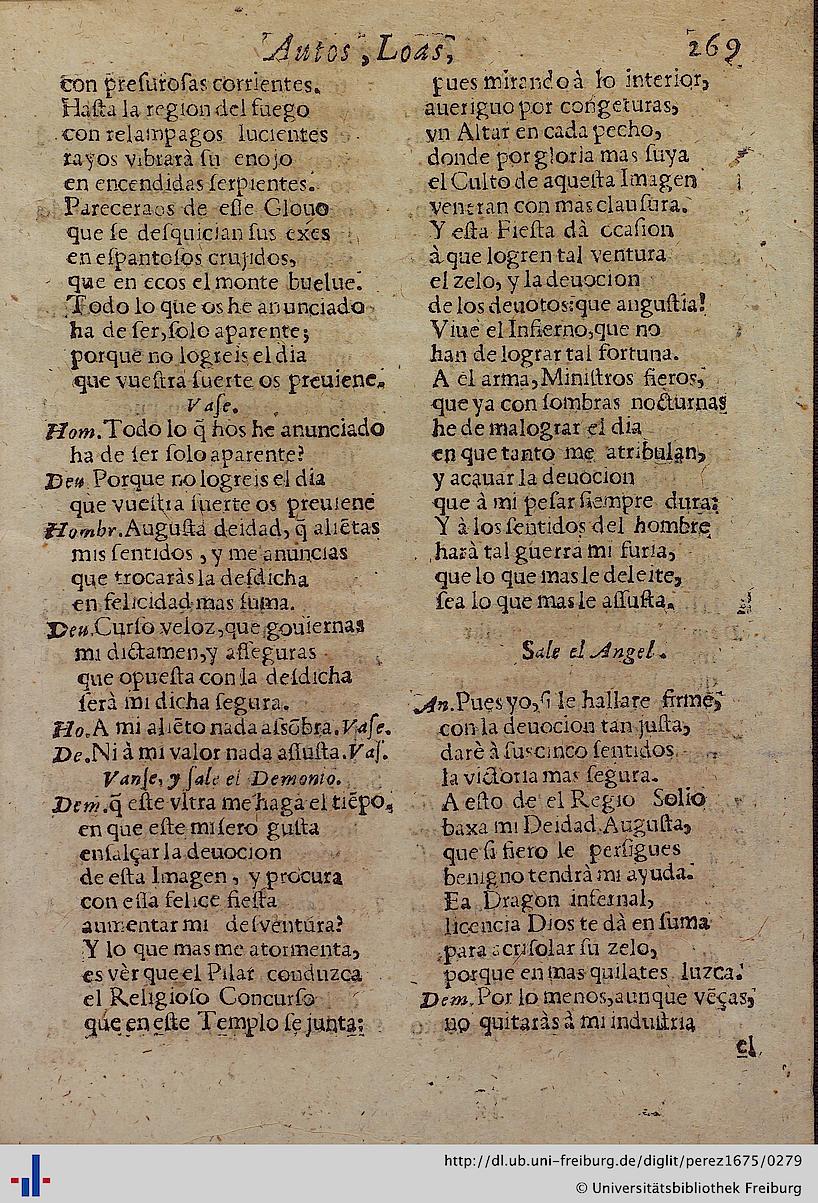 Autos, Loas, 269
con presurosas corrientes.
Hasta la region del fuego
con relampagos lucientes
rayos vibrarà su enojo
en encendidas serpientes.
Pareceraos de esse Glouo
que se desquician sus exes
en espantosos crujidos,
que en ecos el monte buelue.
Todo lo que os he anunciado
ha de ser, solo aparente;
porque no logreis el dia
que vuestra suerte os preuiene.
Vase.
Hom. Todo lo q̃ hos he anunciado
ha de ser solo aparente?
Deu Porque no logreis el dia
que vuestra suerte os preuiene
Hombr. Augusta deidad, q̃ aliẽtas
mis sentidos, y me anuncias
que trocaràs la desdicha
en felicidad mas suma.
Deu. Curso veloz, que gouiernas
mi dictamen, y asseguras
que opuesta con la desdicha
serà mi dicha segura.
Ho. A mi aliẽto nada assõbra. Vase.
De. Ni à mi valor nada assusta. Vas.
Vanse, y sale el Demonio.
Dem. q̃ este vltra me haga el tiẽpo,
en que este misero gusta
ensalçar la deuocion
de esta Imagen, y procura
con essa felice fiesta
aumentar mi desventura?
Y lo que mas me atormenta,
es vèr que el Pilar conduzca
el Religioso Concurso
que en este Templo se junta;
pues mirando à lo interior,
aueriguo por congeturas,
vn Altar en cada pecho,
donde por gloria mas suya
el Culto de aquesta Imagen
veneran con mas clausura.
Y esta Fiesta dà ocasion
à que logren tal ventura
el zelo, y la deuocion
de los deuotos: que angustia!
Viue el Infierno, que no
han de lograr tal fortuna.
A el arma, Ministros fieros,
que ya con sombras nocturnas
he de malograr el dia
en que tanto me atribulan,
y acauar la deuocion
que à mi pesar siempre dura:
Y à los sentidos del hombre
harà tal guerra mi furia,
que lo que mas le deleite,
sea lo que mas le assusta.
Sale el Angel.
An. Pues yo, si le hallare firme,
con la deuocion tan justa,
darè à sus cinco sentidos
la victoria mas segura.
A esto de el Regio Solio
baxa mi Deidad Augusta,
que si fiero le persigues
benigno tendrà mi ayuda.
Ea Dragon infernal,
licencia Dios te dà en suma
para acrisolar su zelo,
porque en mas quilates luzca.
Dem. Por lo menos, aunque vẽças,
no quitaràs à mi industria
el
http://dl.ub.uni-freiburg.de/diglit/perez1675/0279
© Universitätsbibliothek Freiburg